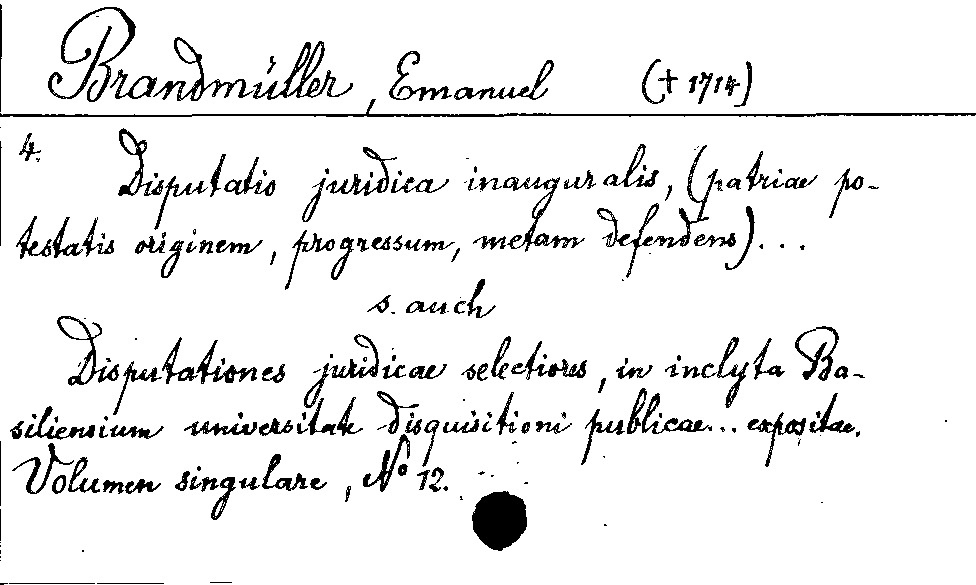 Brandmüller, Emanuel († 1714)
4.
Disputatio juridica inauguralis, (patriae po-
testatis originem, progressum, metam defendens)...
s. auch
Disputationes juridicae selectiores, in inclyta Ba-
siliensium universitate disquisitioni publicae... expositae.
Volumen singulare, No 12.